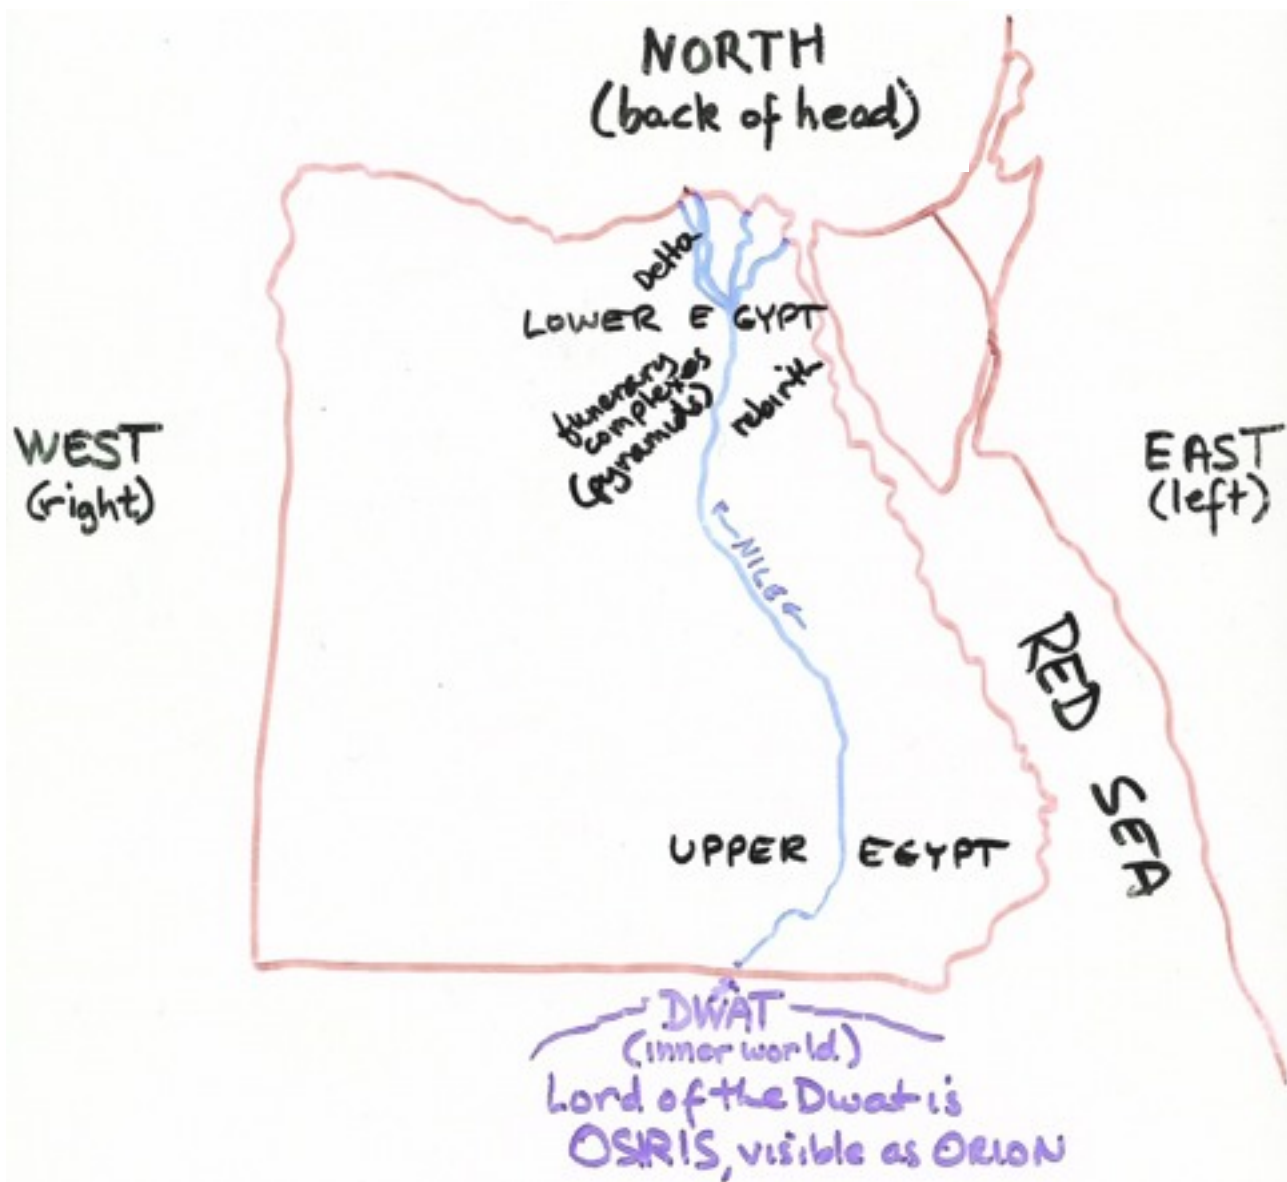 NORTH
(back of head)
Delta
LOWER EGYPT
funerary
complexes
(pyramids)
rebirth
WEST
(right)
EAST
(left)
NILE
RED SEA
UPPER EGYPT
DWAT
(inner world)
Lord of the Dwat is
OSIRIS, visible as ORION